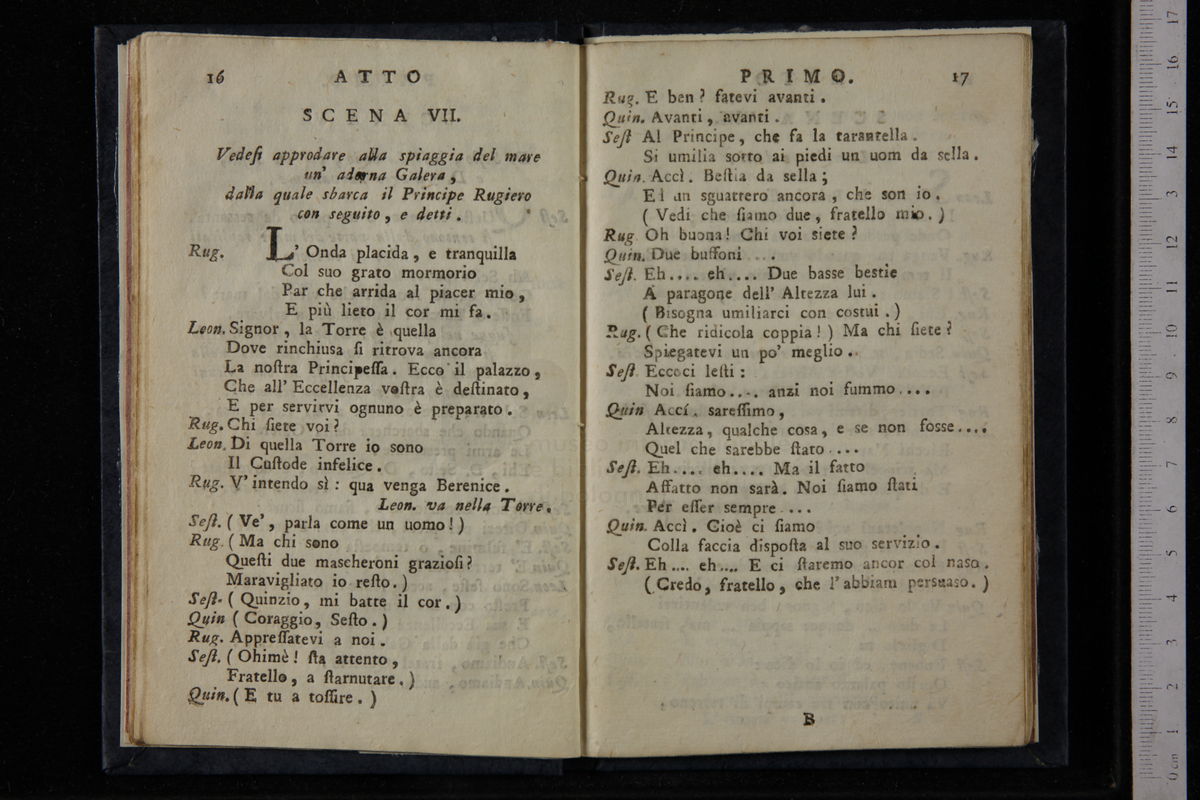 16 ATTO
SCENA VII.
Vedesi approdare alla spiaggia del mare
un' adorna Galera,
dalla quale sbarca il Principe Rugiero
con seguito, e detti.
Rug. L' Onda placida, e tranquilla
Col suo grato mormorio
Par che arrida al piacer mio,
E più lieto il cor mi fa.
Leon. Signor, la Torre è quella
Dove rinchiusa ſi ritrova ancora
La noſtra Principeſſa. Ecco il palazzo,
Che all' Eccellenza voſtra è deſtinato,
E per servirvi ognuno è preparato.
Rug. Chi ſiete voi?
Leon. Di quella Torre io sono
Il Cuſtode infelice.
Rug. V' intendo sì: qua venga Berenice.
Leon. va nella Torre.
Seſt. (Ve', parla come un uomo!)
Rug. (Ma chi sono
Queſti due mascheroni grazioſi?
Maravigliato io reſto.)
Seſt. (Quinzio, mi batte il cor.)
Quin (Coraggio, Seſto.)
Rug. Appreſſatevi a noi.
Seſt. (Ohimè! ſta attento,
Fratello, a ſtarnutare.)
Quin. (E tu a toſſire.)
PRIMO. 17
Rug. E ben? fatevi avanti.
Quin. Avanti, avanti.
Seſt Al Principe, che fa la tarantella.
Si umilia sotto ai piedi un uom da sella.
Quin. Accì. Beſtia da sella;
Ed un sguattero ancora, che son io.
(Vedi che ſiamo due, fratello mio.)
Rug Oh buona! Chi voi siete?
Quin. Due buffoni ....
Seſt. Eh.... eh.... Due basse bestie
A paragone dell' Altezza lui.
(Bisogna umiliarci con costui.)
Rug. (Che ridicola coppia!) Ma chi ſiete?
Spiegatevi un po' meglio.
Seſt. Eccoci leſti:
Noi ſiamo.... anzi noi fummo....
Quin Accí. sareſſimo,
Altezza, qualche cosa, e se non fosse....
Quel che sarebbe ſtato....
Seſt. Eh.... eh.... Ma il fatto
Affatto non sarà. Noi ſiamo ſtati
Per eſſer sempre....
Quin. Accì. Cioè ci ſiamo
Colla faccia dispoſta al suo servizio.
Seſt. Eh.... eh.... E ci ſtaremo ancor col naso.
(Credo, fratello, che l'abbiam persuaso.)
B